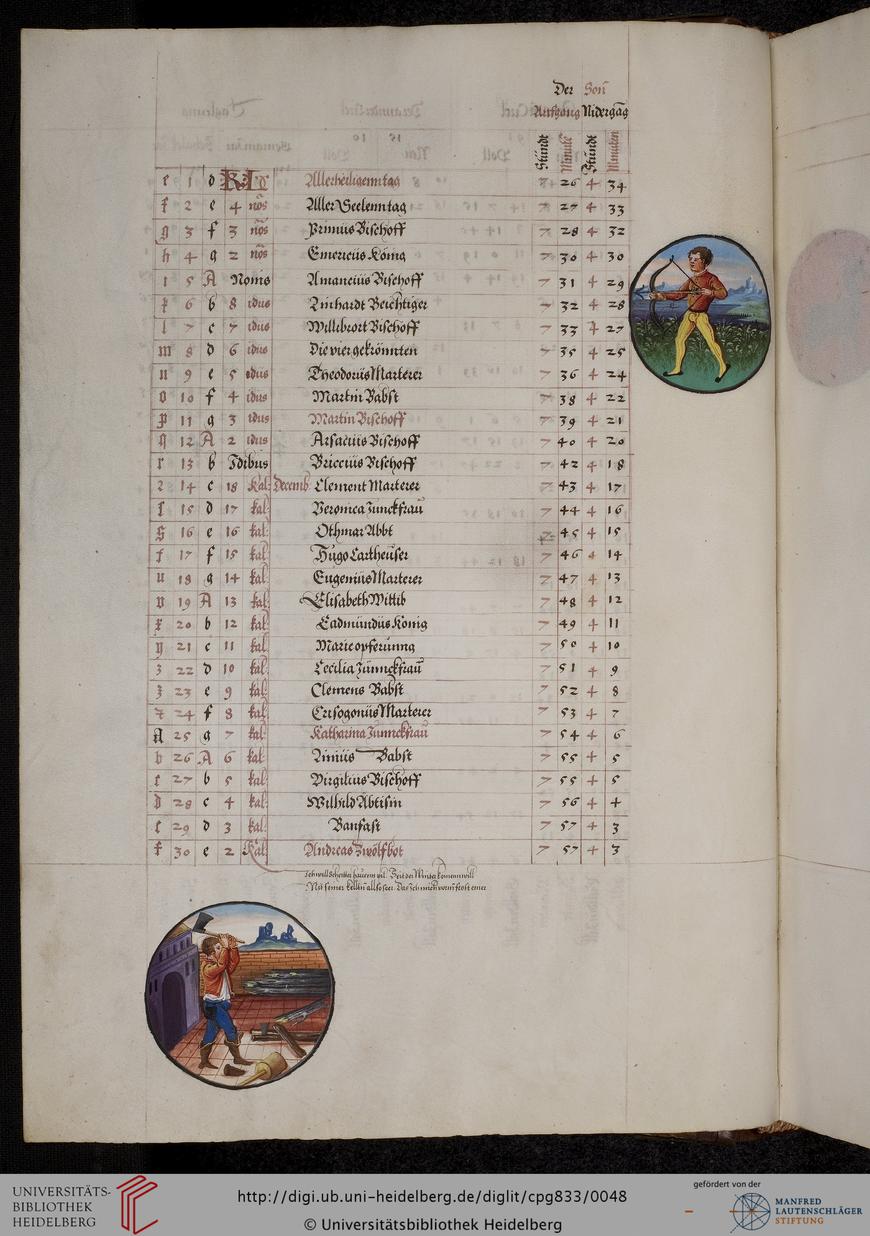 Der Son̄
Auffgang Nidergāg
Stundt Minute Stundt Minuten
e 1 d KLd Allerheiligenntag 7 26 4 34
f 2 e 4 nōs Aller Seelenntag 7 27 4 33
g 3 f 3 nōs Primus Bischoff 7 28 4 32
h 4 g 2 nōs Emericus König 7 30 4 30
i 5 A Nonis Amancius Bischoff 7 31 4 29
k 6 b 8 idus Linhardt Beichtiger 7 32 4 28
l 7 c 7 idus Willibrort Bischoff 7 33 4 27
m 8 d 6 idus Die vier gekrönnten 7 35 4 25
n 9 e 5 idus Theodorus Marterer 7 36 4 24
o 10 f 4 idus Martin Babst 7 38 4 22
p 11 g 3 idus Martin Bischoff 7 39 4 21
q 12 A 2 idus Arsacius Bischoff 7 40 4 20
r 13 b Idibus Briccius Bischoff 7 42 4 18
2 14 c 18 Kal: Decemb: Clement Marterer 7 43 4 17
ſ 15 d 17 kal: Veronica Junckfrau 7 44 4 16
s 16 e 16 kal: Othmar Abbt 7 45 4 15
t 17 f 15 kal: Hugo Cartheuser 7 46 4 14
u 18 g 14 kal: Eugenius Marterer 7 47 4 13
v 19 A 13 kal: Elisabeth Wittib 7 48 4 12
x 20 b 12 kal: Eadmundus König 7 49 4 11
y 21 c 11 kal: Marie opferunng 7 50 4 10
z 22 d 10 kal: Cecilia Junnckfrau 7 51 4 9
z 23 e 9 kal: Clemens Babst 7 52 4 8
24 f 8 kal: Crisogonus Marterer 7 53 4 7
A 25 g 7 kal: Katharina Junnckfrau 7 54 4 6
b 26 A 6 kal: Linius Babst 7 55 4 5
c 27 b 5 kal: Virgilius Bischoff 7 55 4 5
d 28 c 4 kal: Wilhild Abtisin 7 56 4 4
e 29 d 3 kal: Banfast 7 57 4 3
f 30 e 2 Kal: Andreas Zwölfbot 7 57 4 3
Ich will Scheitter hauenn vil. Zeit der Winter komenn will
Mit seiner Kelltn̄ allso ser. Das Ich mich
UNIVERSITÄTS-
BIBLIOTHEK
HEIDELBERG
http://digi.ub.uni-heidelberg.de/diglit/cpg833/0048
© Universitätsbibliothek Heidelberg
gefördert von der
MANFRED
LAUTENSCHLÄGER
STIFTUNG